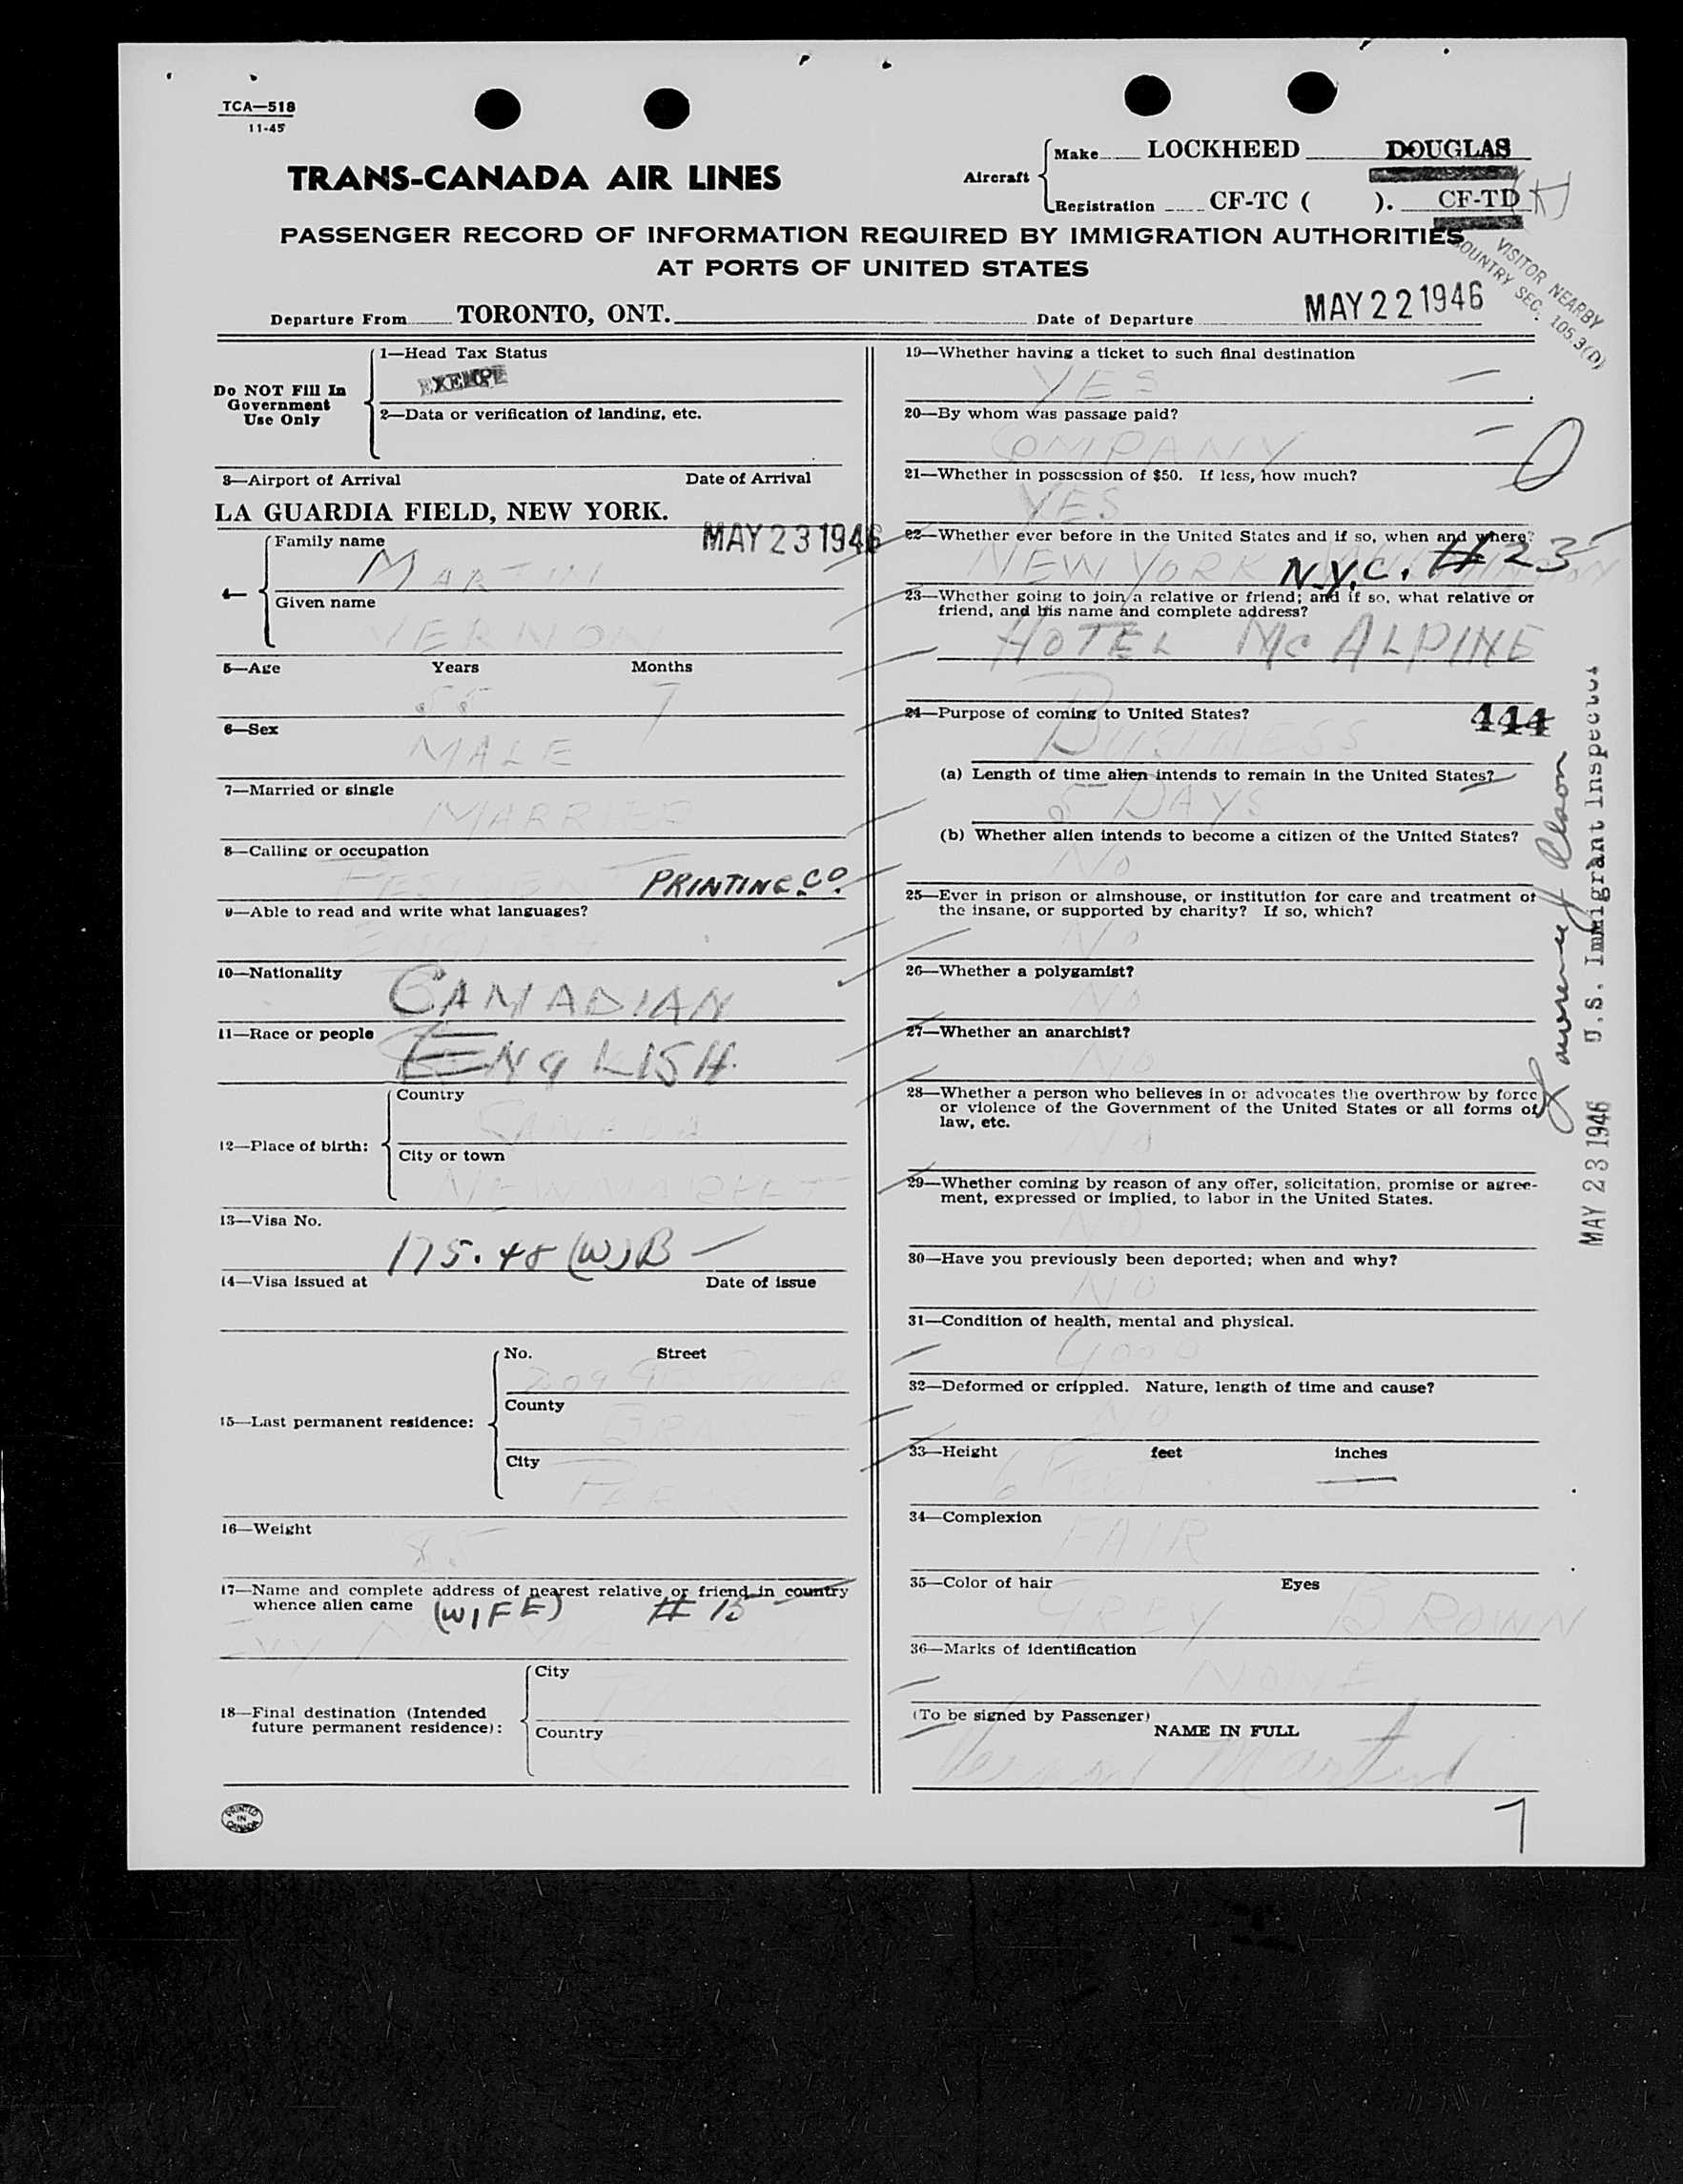 TCA—518
11-45
TRANS-CANADA AIR LINES
Aircraft
Make LOCKHEED DOUGLAS
Registration CF-TC ( ). CF-TD
PASSENGER RECORD OF INFORMATION REQUIRED BY IMMIGRATION AUTHORITIES
AT PORTS OF UNITED STATES
VISITOR NEARBY
COUNTRY SEC. 105.3(D)
Departure From TORONTO, ONT. Date of Departure MAY 22 1946
Do NOT Fill In
Government
Use Only
1—Head Tax Status
EXEMPT
2—Data or verification of landing, etc.
3—Airport of Arrival Date of Arrival
LA GUARDIA FIELD, NEW YORK.
MAY 23 1946
4—
Family name
MARTIN
Given name
VERNON
5—Age Years Months
55 7
6—Sex
MALE
7—Married or single
MARRIED
8—Calling or occupation
PRINTING CO.
9—Able to read and write what languages?
ENGLISH
10—Nationality
CANADIAN
11—Race or people
ENGLISH
12—Place of birth:
Country
CANADA
City or town
NEWMARKET
13—Visa No.
175.48 (W)B
14—Visa issued at Date of issue
15—Last permanent residence:
No. Street
County
City
16—Weight
17—Name and complete address of nearest relative or friend in country
whence alien came
(WIFE) # 15
18—Final destination (Intended
future permanent residence):
City
PARIS
Country
CANADA
PRINTED
IN
CANADA
19—Whether having a ticket to such final destination
YES
20—By whom was passage paid?
COMPANY
21—Whether in possession of $50. If less, how much?
YES
22—Whether ever before in the United States and if so, when and where?
NEW YORK N.Y.C. # 23
23—Whether going to join a relative or friend; and if so, what relative or
friend, and his name and complete address?
HOTEL McALPINE
24—Purpose of coming to United States?
444
BUSINESS
(a) Length of time alien intends to remain in the United States?
5 DAYS
(b) Whether alien intends to become a citizen of the United States?
NO
25—Ever in prison or almshouse, or institution for care and treatment of
the insane, or supported by charity? If so, which?
NO
26—Whether a polygamist?
NO
27—Whether an anarchist?
NO
28—Whether a person who believes in or advocates the overthrow by force
or violence of the Government of the United States or all forms of
law, etc.
NO
29—Whether coming by reason of any offer, solicitation, promise or agree-
ment, expressed or implied, to labor in the United States.
NO
30—Have you previously been deported; when and why?
NO
31—Condition of health, mental and physical.
GOOD
32—Deformed or crippled. Nature, length of time and cause?
NO
33—Height feet inches
6 FEET
34—Complexion
FAIR
35—Color of hair Eyes
GREY BROWN
36—Marks of identification
NONE
(To be signed by Passenger)
NAME IN FULL
Vernon Martin
7
MAY 23 1946 U.S. Immigrant Inspector